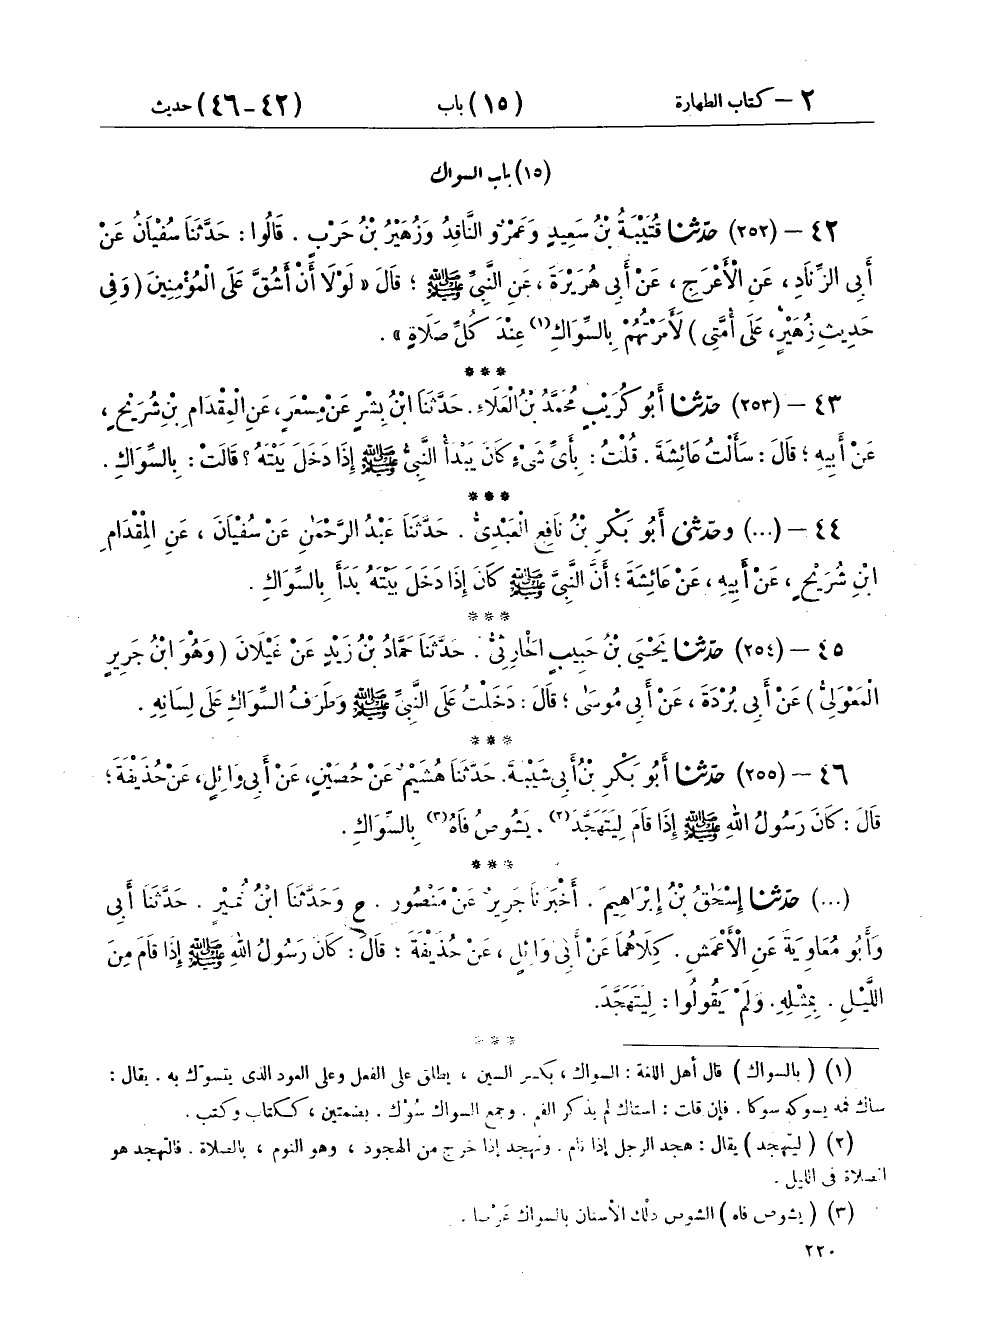 ٢ – كتاب الطهارة (١٥) باب (٤٢–٤٦) حديث
(١٥) باب السواك
٤٢ – (٢٥٢) حَدَّثَنَا قُتَيْبَةُ بْنُ سَعِيدٍ وَعَمْرٌو النَّاقِدُ وَزُهَيْرُ بْنُ حَرْبٍ . قَالُوا : حَدَّثَنَا سُفْيَانُ عَنْ
أَبِي الزِّنَادِ ، عَنِ الْأَعْرَجِ ، عَنْ أَبِي هُرَيْرَةَ ، عَنِ النَّبِيِّ ﷺ ؛ قَالَ « لَوْلَا أَنْ أَشُقَّ عَلَى الْمُؤْمِنِينَ ( وَفِي
حَدِيثِ زُهَيْرٍ ، عَلَى أُمَّتِي ) لَأَمَرْتُهُمْ بِالسِّوَاكِ(١) عِنْدَ كُلِّ صَلَاةٍ » .
***
٤٣ – (٢٥٣) حَدَّثَنَا أَبُو كُرَيْبٍ مُحَمَّدُ بْنُ الْعَلَاءِ . حَدَّثَنَا ابْنُ بِشْرٍ عَنْ مِسْعَرٍ ، عَنِ الْمِقْدَامِ بْنِ شُرَيْحٍ ،
عَنْ أَبِيهِ ؛ قَالَ : سَأَلْتُ عَائِشَةَ . قُلْتُ : بِأَيِّ شَيْءٍ كَانَ يَبْدَأُ النَّبِيُّ ﷺ إِذَا دَخَلَ بَيْتَهُ ؟ قَالَتْ : بِالسِّوَاكِ .
***
٤٤ – (...) وَحَدَّثَنِي أَبُو بَكْرِ بْنُ نَافِعٍ الْعَبْدِيُّ . حَدَّثَنَا عَبْدُ الرَّحْمَٰنِ عَنْ سُفْيَانَ ، عَنِ الْمِقْدَامِ
ابْنِ شُرَيْحٍ ، عَنْ أَبِيهِ ، عَنْ عَائِشَةَ ؛ أَنَّ النَّبِيَّ ﷺ كَانَ إِذَا دَخَلَ بَيْتَهُ بَدَأَ بِالسِّوَاكِ .
***
٤٥ – (٢٥٤) حَدَّثَنَا يَحْيَى بْنُ حَبِيبٍ الْحَارِثِيُّ . حَدَّثَنَا حَمَّادُ بْنُ زَيْدٍ عَنْ غَيْلَانَ ( وَهُوَ ابْنُ جَرِيرٍ
الْمَعْوَلِيُّ ) عَنْ أَبِي بُرْدَةَ ، عَنْ أَبِي مُوسَى ؛ قَالَ : دَخَلْتُ عَلَى النَّبِيِّ ﷺ وَطَرَفُ السِّوَاكِ عَلَى لِسَانِهِ .
***
٤٦ – (٢٥٥) حَدَّثَنَا أَبُو بَكْرِ بْنُ أَبِي شَيْبَةَ . حَدَّثَنَا هُشَيْمٌ عَنْ حُصَيْنٍ ، عَنْ أَبِي وَائِلٍ ، عَنْ حُذَيْفَةَ ؛
قَالَ : كَانَ رَسُولُ اللهِ ﷺ إِذَا قَامَ لِيَتَهَجَّدَ(٢) . يَشُوصُ فَاهُ(٣) بِالسِّوَاكِ .
***
(...) حَدَّثَنَا إِسْحَٰقُ بْنُ إِبْرَاهِيمَ . أَخْبَرَنَا جَرِيرٌ عَنْ مَنْصُورٍ . ح وَحَدَّثَنَا ابْنُ نُمَيْرٍ . حَدَّثَنَا أَبِي
وَأَبُو مُعَاوِيَةَ عَنِ الْأَعْمَشِ . كِلَاهُمَا عَنْ أَبِي وَائِلٍ ، عَنْ حُذَيْفَةَ ؛ قَالَ : كَانَ رَسُولُ اللهِ ﷺ إِذَا قَامَ مِنَ
اللَّيْلِ . بِمِثْلِهِ . وَلَمْ يَقُولُوا : لِيَتَهَجَّدَ .
***
(١) ( بالسواك ) قال أهل اللغة : السواك ، بكسر السين ، يطلق على الفعل وعلى العود الذى يتسوّك به . يقال :
ساك فمه يسوكه سوكا . فإن قلت : استاك لم يذكر الفم . وجمع السواك سُوُك . بضمتين ، ككتاب وكتب .
(٢) ( ليتهجد ) يقال : هجد الرجل إذا نام . وتهجد إذا خرج من الهجود ، وهو النوم ، بالصلاة . فالتهجد هو
الصلاة فى الليل .
(٣) ( يشوص فاه ) الشوص دلك الأسنان بالسواك عَرْضا .
٢٢٠